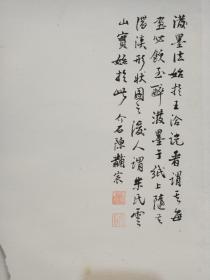 潑墨法始於王洽說者謂其每
欲畫必飲至醉潑墨于紙上隨其
濃淡形狀圖之後人謂朱氏雲
山實始於此 介石陳